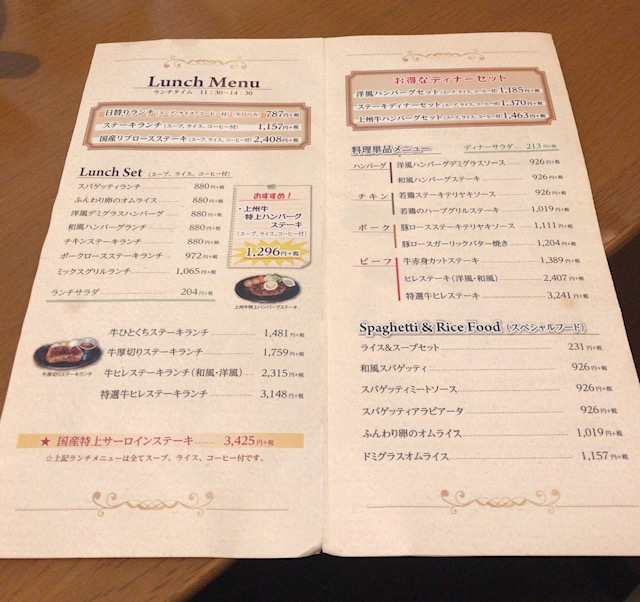 Lunch Menu
ランチタイム 11:30~14:30
日替りランチ(スープ、ライス、コーヒー付) 平日のみ 787円+税
ステーキランチ(スープ、ライス、コーヒー付) 1,157円+税
国産リブロースステーキ(スープ、ライス、コーヒー付) 2,408円+税
Lunch Set (スープ、ライス、コーヒー付)
スパゲッティランチ 880円+税
ふんわり卵のオムライス 880円+税
洋風デミグラスハンバーグ 880円+税
和風ハンバーグランチ 880円+税
チキンステーキランチ 880円+税
ポークロースステーキランチ 972円+税
ミックスグリルランチ 1,065円+税
ランチサラダ 204円+税
おすすめ!
・上州牛
特上ハンバーグ
ステーキ
(スープ、ライス、コーヒー付)
1,296円+税
上州牛特上ハンバーグステーキ
牛ひとくちステーキランチ 1,481円+税
牛厚切りステーキランチ 1,759円+税
牛ヒレステーキランチ(和風・洋風) 2,315円+税
特選牛ヒレステーキランチ 3,148円+税
牛厚切りステーキランチ
★ 国産特上サーロインステーキ 3,425円+税
☆上記ランチメニューは全てスープ、ライス、コーヒー付です。
お得なディナーセット
洋風ハンバーグセット(スープ、ライス、コーヒー付) 1,185円+税
ステーキディナーセット(スープ、ライス、コーヒー付) 1,370円+税
上州牛ハンバーグセット(スープ、ライス、コーヒー付) 1,463円+税
料理単品メニュー ディナーサラダ 213円+税
ハンバーグ 洋風ハンバーグデミグラスソース 926円+税
和風ハンバーグステーキ 926円+税
チキン 若鶏ステーキテリヤキソース 926円+税
若鶏のハーブグリルステーキ 1,019円+税
ポーク 豚ロースステーキテリヤキソース 1,111円+税
豚ロースガーリックバター焼き 1,204円+税
ビーフ 牛赤身カットステーキ 1,389円+税
ヒレステーキ(洋風・和風) 2,407円+税
特選牛ヒレステーキ 3,241円+税
Spaghetti & Rice Food (スペシャルフード)
ライス&スープセット 231円+税
和風スパゲッティ 926円+税
スパゲッティミートソース 926円+税
スパゲッティアラビアータ 926円+税
ふんわり卵のオムライス 1,019円+税
ドミグラスオムライス 1,157円+税